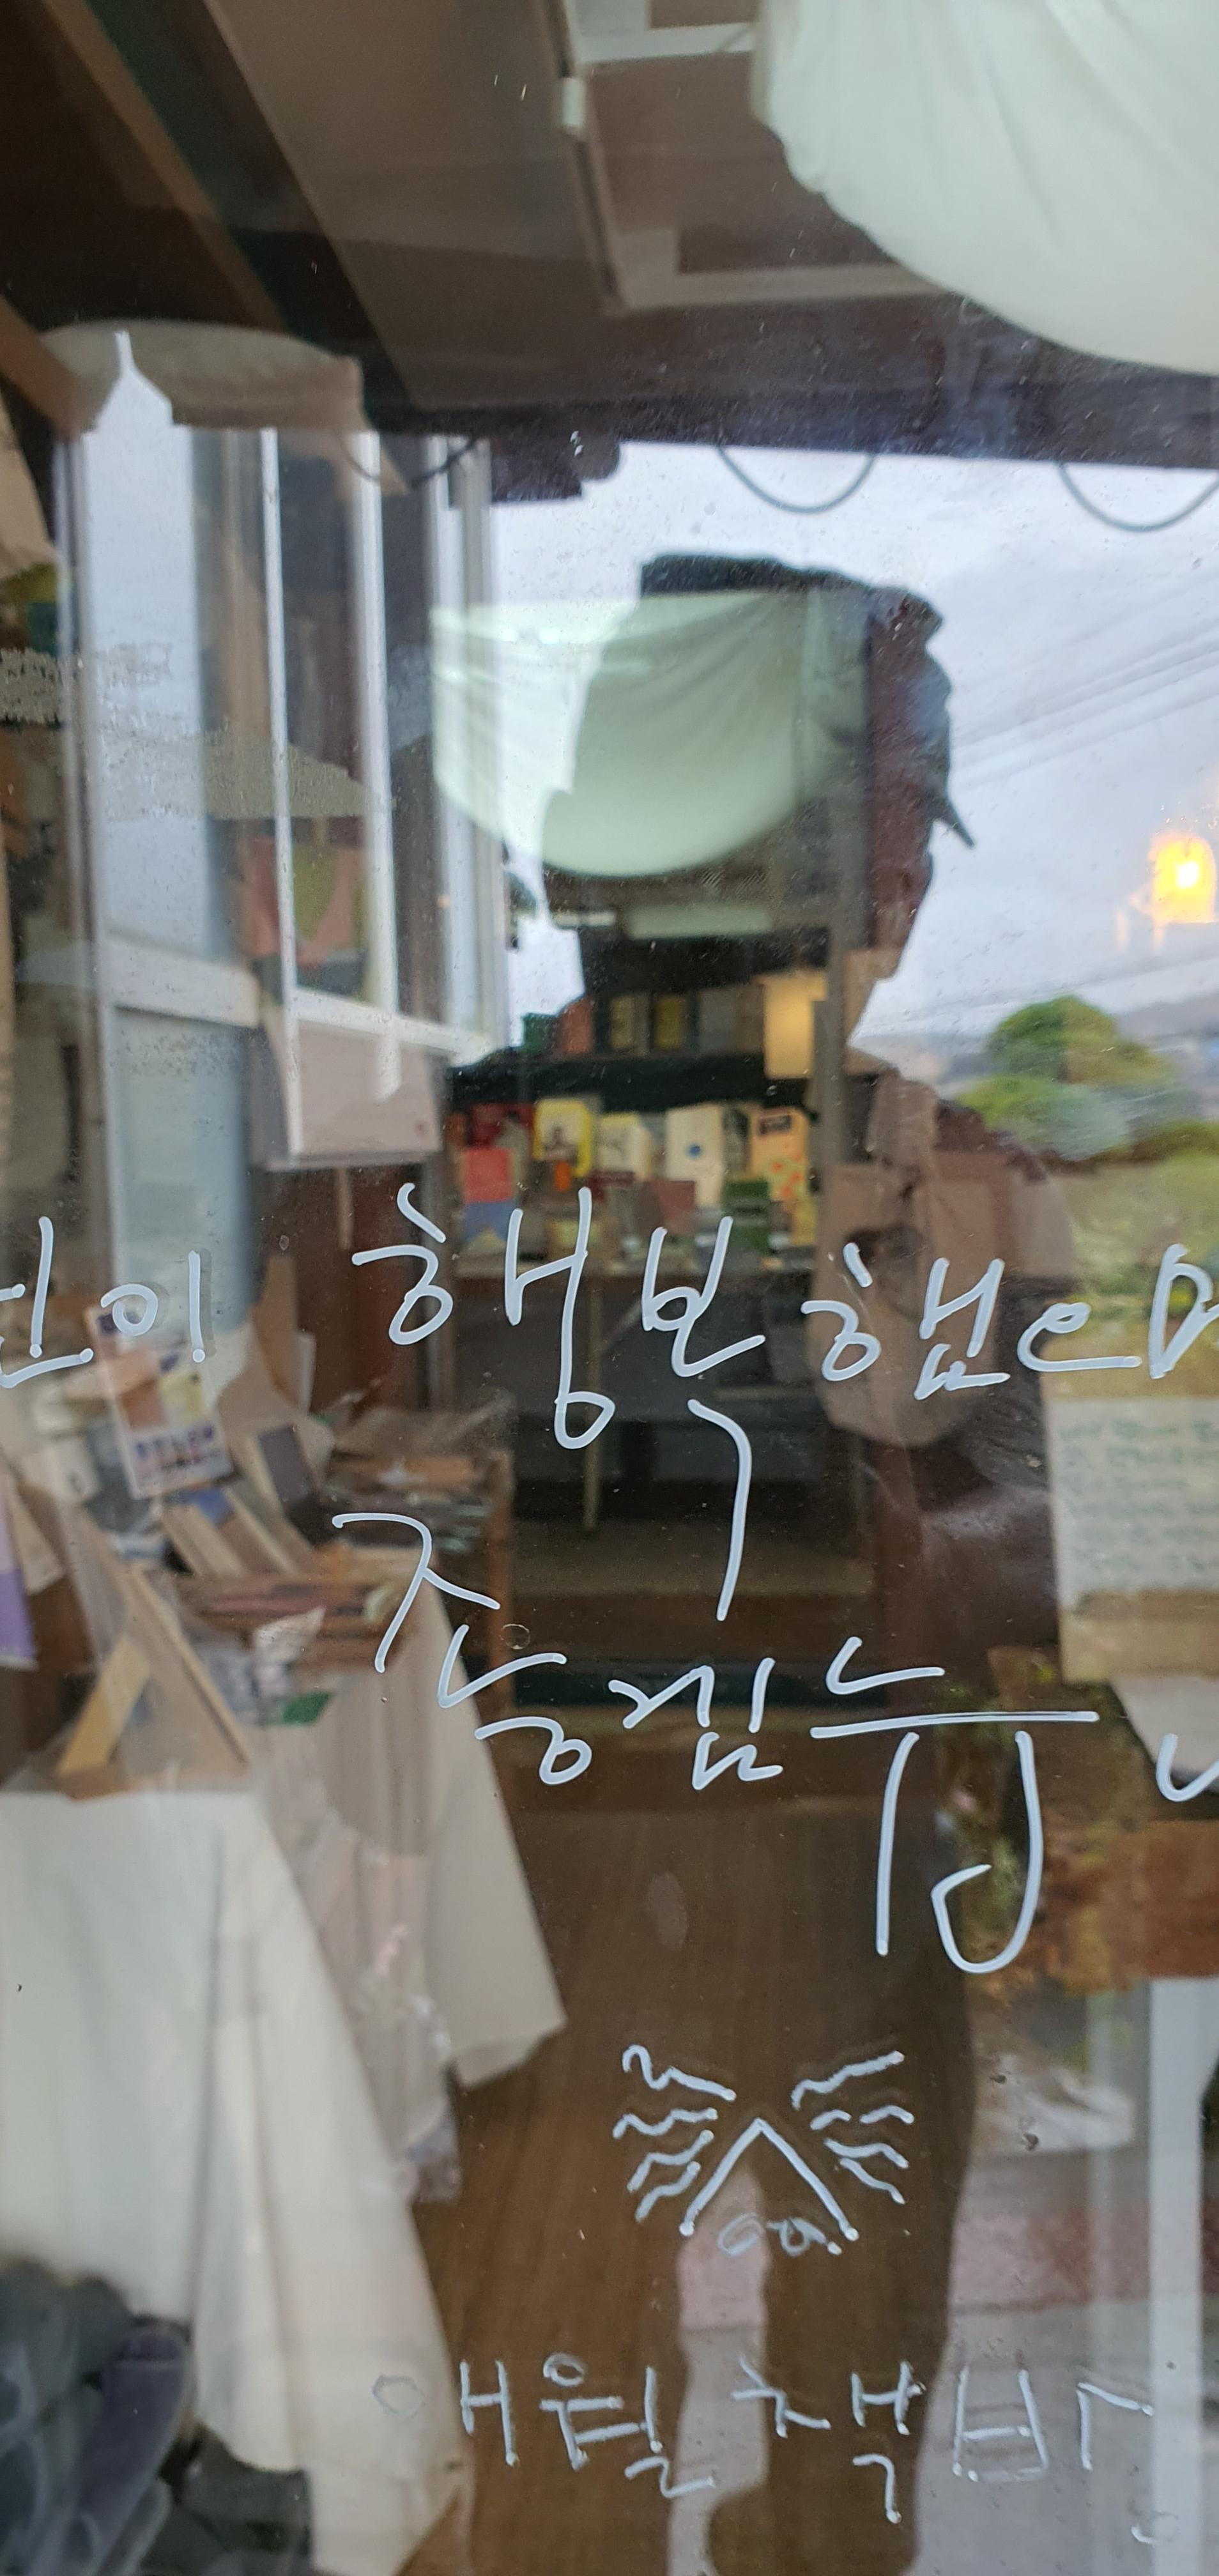 신이 행복했으면
좋겠습니
애월 책방